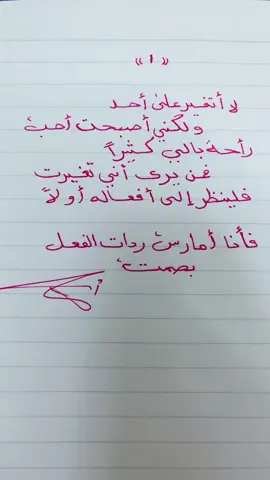 « ١ »
لا أتغير على أحد
ولكني أصبحت أحب
راحة بالي كثيراً
فمن يرى أنني تغيرت
فلينظر إلى أفعاله أولاً
فأنا أمارس ردات الفعل
بصمت